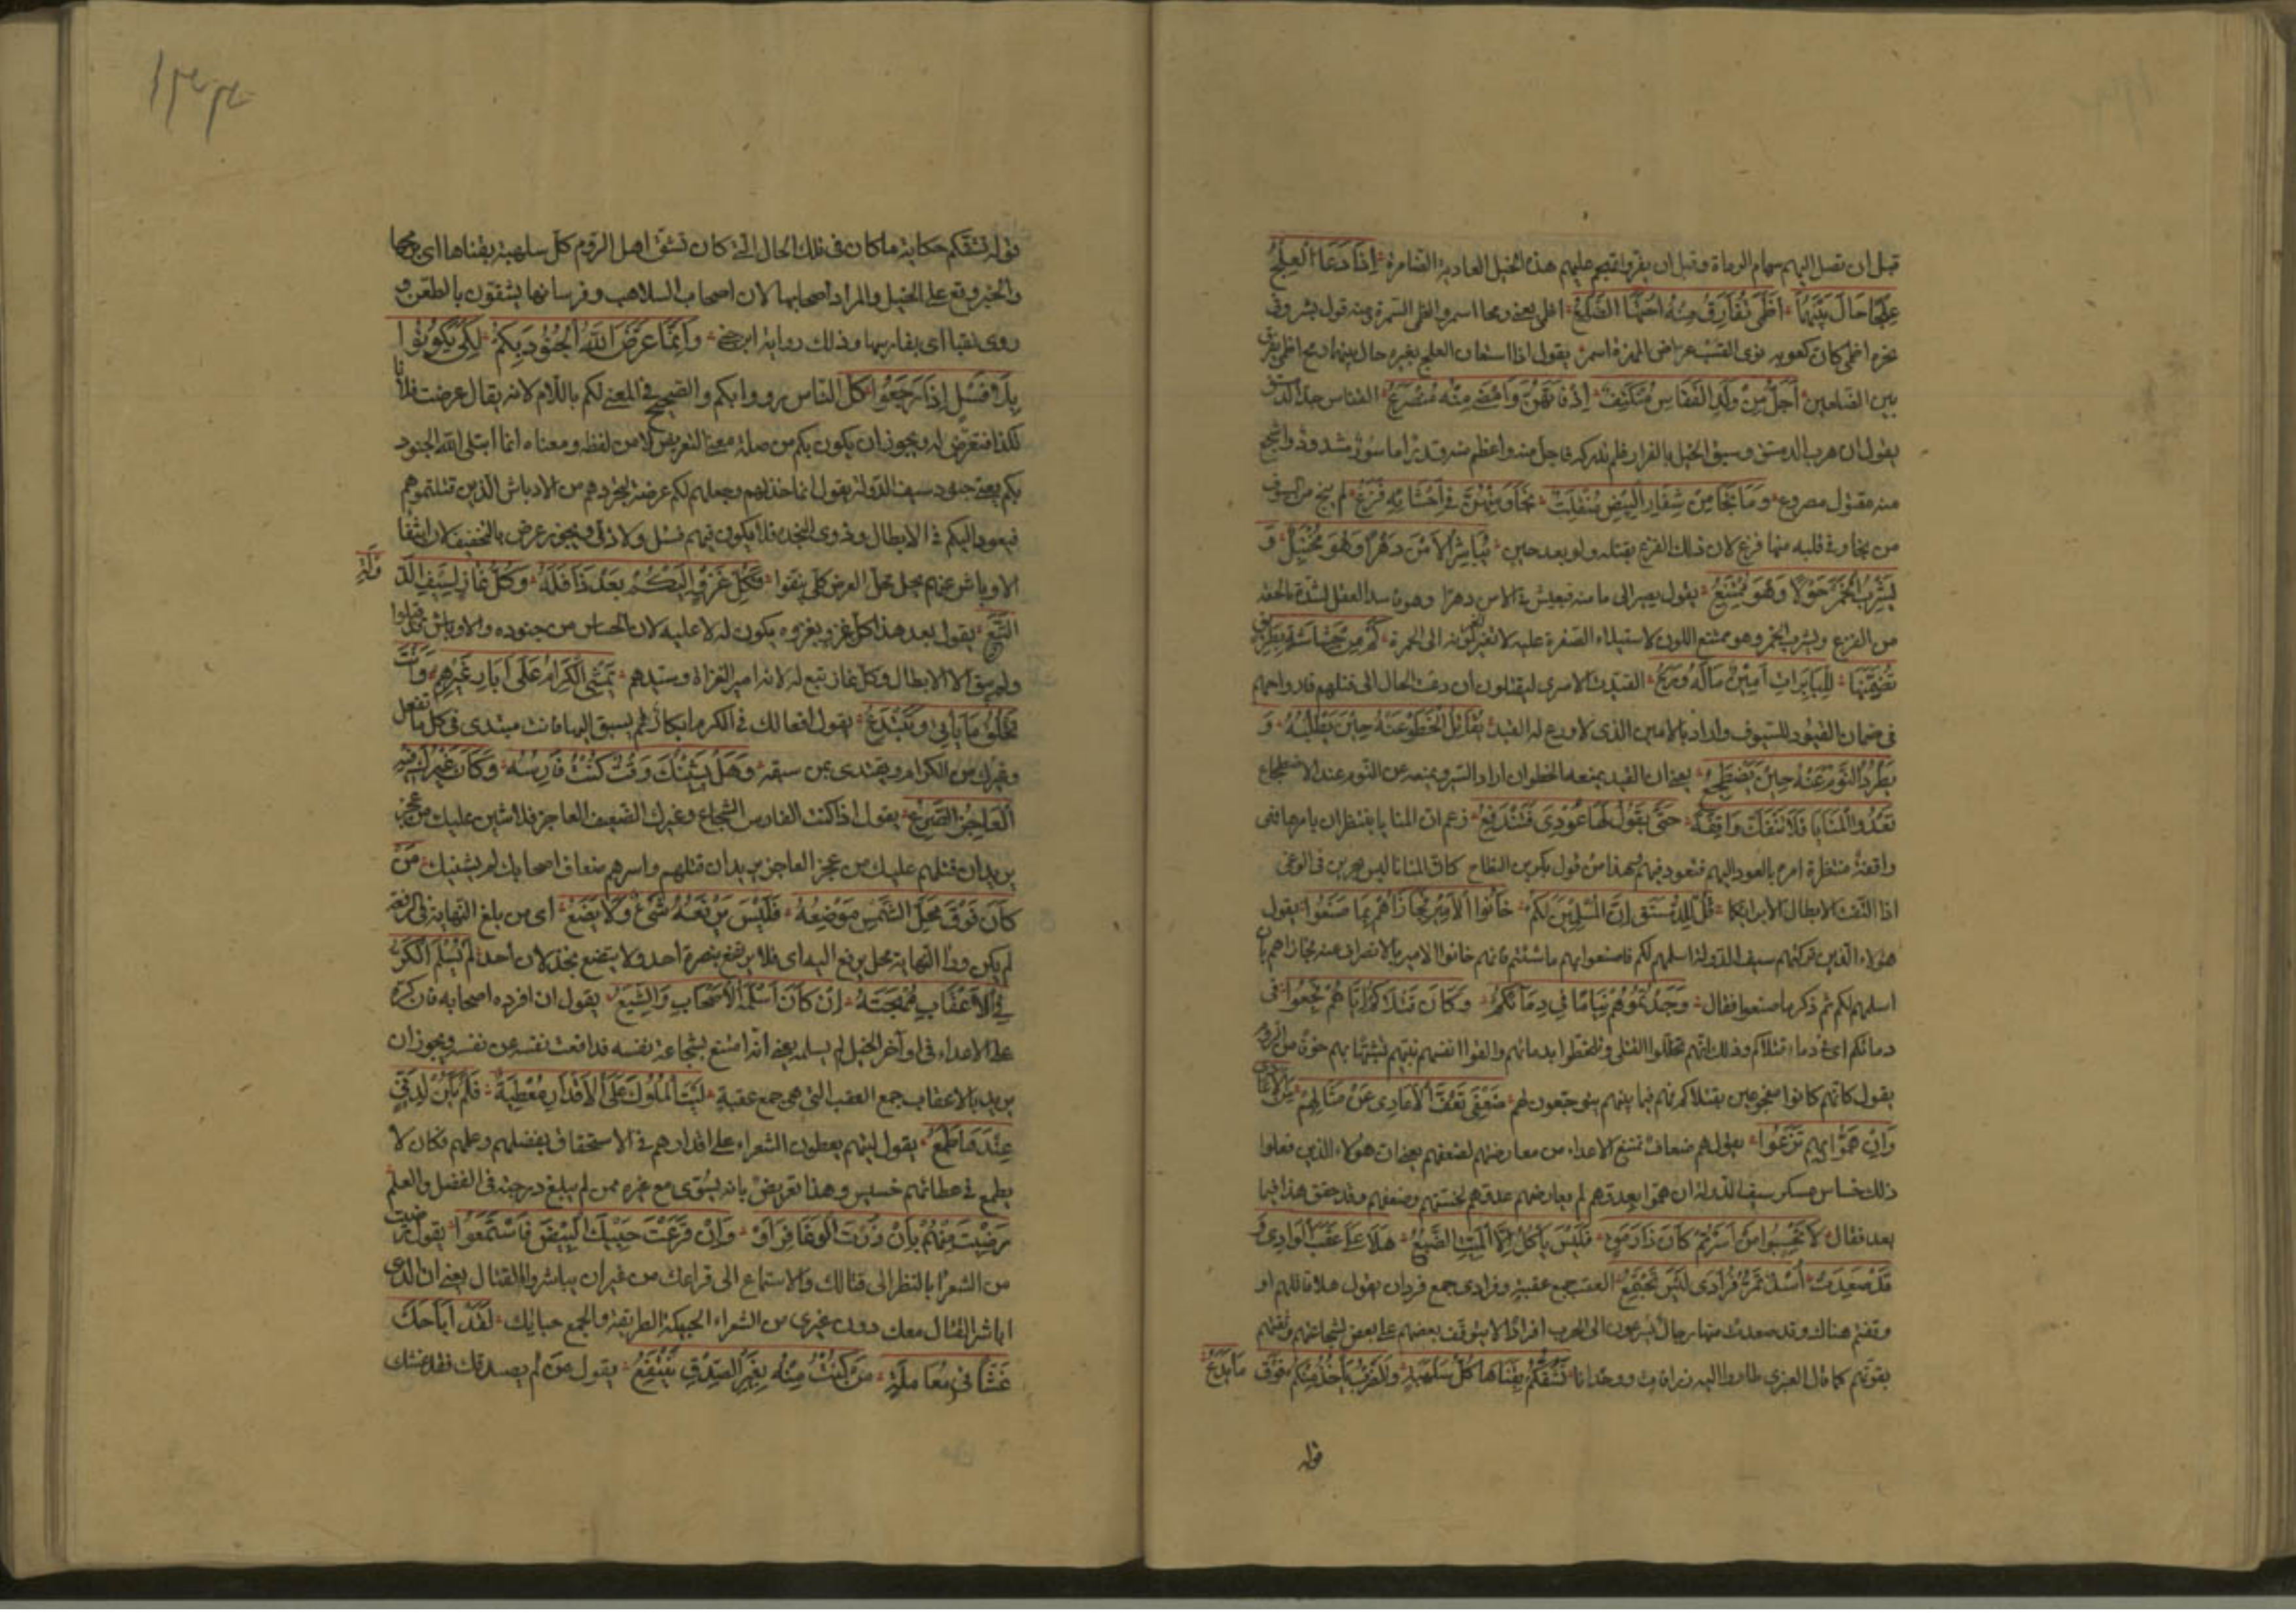 قبل ان تصل اليهم سهام الرماة وقبل ان يفروا تهجم عليهم هذه الخيل العادية الضامرة اِذَا دَعَا الْعِلْجُ
عِلْجًا حَالَ بَيْنَهُمَا اَظْمَى تُفَارِقُ مِنْهُ اُخْتَهَا الضِّلَعُ اظمى يعنى رمحا اسمر والظمى السمرة ومنه قول بشر وفى
نحره اظمى كان كعوبه نوى القسب عراض المهزة اسمر يقول اذا استعان العلج بغيره حال بينهما رمح اظمى يفرق
بين الضلعين اَجَلُّ مِنْ وَلَدِ الْفُقَّاسِ مُنْكَتِفٌ اِذْ فَاتَهُنَّ وَاَمْضَى مِنْهُ مُنْصَرِعُ الفقاس جد الدمستق
يقول ان هرب الدمستق وسبق الخيل بالفرار فلم تدركه فاجل منه واعظم منه قدرا ماسور مشدود واشجع
منه مقتول مصروع وَمَا نَجَا مِنْ شِفَارِ الْبِيْضِ مُنْفَلِتٌ نَجَا وَمِنْهُنَّ فِى اَحْشَائِهِ فَزَعُ لم ينج من السيوف
من نجا وفى قلبه منها فزع لان ذلك الفزع يقتله ولو بعد حين يُبَاشِرُ الْاَمْنَ دَهْرًا وَهُوَ مُخْتَبَلٌ وَ
يَشْرَبُ الْخَمْرَ حَوْلًا وَهُوَ مُمْتَقَعُ يقول يصير الى مامنه فيعيش فى الامن دهرا وهو فاسد العقل لشدة ما لحقه
من الفزع ويشرب الخمر وهو ممتقع اللون لاستيلاء الصفرة عليه لا تغير لونه الى الحمرة كَمْ مِنْ حُشَاشَةِ بِطْرِيْقٍ
تَضَمَّنَهَا لِلْبَاتِرَاتِ اَمِيْنٌ مَا لَهُ وَرَعُ القيد للاسرى ليقتلون ان دعت الحال الى قتلهم فارواحهم
فى ضمان القيود للسيوف واراد بالامين الذى لا ورع له القيد يُقَاتِلُ الْخَطْوَ عَنْهُ حِيْنَ يَطْلُبُهُ وَ
يَطْرُدُ النَّوْمَ عَنْهُ حِيْنَ يَضْطَجِعُ يعنى ان القيد يمنعه الخطو ان اراد السير ويمنعه عن النوم عند الاضطجاع
تَغْدُو الْمَنَايَا فَلَا تَنْفَكُّ وَاقِفَةً حَتَّى يَقُوْلَ لَهَا عُوْدِى فَتَنْدَفِعُ زعم ان المنايا ينتظران يامرها فهى
واقفة منتظرة امره بالعود اليهم فتعود فيهم هذا من قول بكر بن النطاح كان المنايا ليس يجرين فى الوغى
اذا التقت الابطال الا برايكا قُلْ لِلدُّمُسْتُقِ اِنَّ الْمُسْلَمِيْنَ لَكُمْ خَانُوا الْاَمِيْرَ فَجَازَاهُمْ بِمَا صَنَعُوا يقول
هؤلاء الذين تركتهم سيف الدولة اسلمهم لكم فاصنعوا بهم ما شئتم فانهم خانوا الامير بالانصراف عنه فجازاهم بان
اسلمهم لكم ثم ذكر ما صنعوا فقال وَجَدْتُمُوْهُمْ نِيَامًا فِى دِمَائِكُمُ وَكَانَ قَتْلَاكُمْ اِيَّاهُمْ فَجَعُوا فى
دمائكم اى فى دماء قتلاكم وذلك انهم تخللوا القتلى وتلطخوا بدمائهم والقوا انفسهم بينهم تشبها بهم خوفا من الروم
يقول كانهم كانوا مفجوعين بقتلاكم فهم فيما بينهم يتوجعون لهم ضَعْفَى تَعِفُّ الْاَعَادِى عَنْ مِثَالِهِمْ مِنَ الْاَعَادِى
وَاِنْ هَمُّوا بِهِمْ نَزَعُوا يقول هم ضعاف تمتنع الاعداء من معارضتهم لضعفهم يعنى ان هؤلاء الذين فعلوا
ذلك خساس عسكر سيف الدولة ان هموا بعدوهم لم يعارضهم عدوهم لخستهم وضعفهم وقد حقق هذا فيما
بعد فقال لَا تَحْسَبُوا مَنْ اَسَرْتُمْ كَانَ ذَا رَمَقٍ فَلَيْسَ يَاْكُلُ اِلَّا الْمَيِّتَ الضَّبُعُ هَلَّا عَلَى عَقَبِ الْوَادِى وَ
قَدْ صَعِدَتْ اُسْدٌ تَمُرُّ فُرَادَى لَيْسَ تَجْتَمِعُ العقب جمع عقبة وفرادى جمع فردان يقول هلا قاتلتم او
وقفتم هناك وقد صعدت منها رجال يسرعون الى الحرب افرادا لا يتوقف بعضهم على بعض لشجاعتهم وثقتهم
بقوتهم كما قال العنبرى طاروا اليه زرافات ووحدانا تَشُقُّكُمْ بِقَنَاهَا كُلُّ سَلْهَبَةٍ وَالضَّرْبُ يَاْخُذُ مِنْكُمْ فَوْقَ مَا يَدَعُ
قوله
قوله تشقكم حكاية ما كان فى تلك الحال التى كان تشق اهل الروم كل سلهبة بقناها اى برمحها
والخبر وقع على الخيل والمراد اصحابها لان اصحاب السلاهب وفرسانها يشقون بالطعن و
روى بفتاها اى بفارسها وذلك رواية ابن جنى وَاِنَّمَا عَرَّضَ اللهُ الْجُنُوْدَ بِكُمْ لِكَىْ يَكُوْنُوا
بِلَا فَسْلٍ اِذَا رَجَعُوا كل الناس رووا بكم والصحيح فى المعنى لكم باللام لانه يقال عرضت فلانا
لكذا فتعرض له ويجوز ان يكون بكم من صلة معنى التعريض لا من لفظه ومعناه انما ابتلى الله الجنود
بكم يعنى جنود سيف الدولة يقول انما خذلهم وجعلهم لكم عرضة ليجردهم من الاوباش الذين قتلتموهم
فيعود اليكم فى الابطال وذوى النجدة فلا يكون فيهم فسل ولا دنى ويجوز عرض بالتخفيف لان انتفا
الاوباش عنهم يحل محل العرض كى ينقوا فَكُلُّ غَزْوٍ اِلَيْكُمْ بَعْدَ ذَا فَلَهُ وَكُلُّ غَازٍ لِسَيْفِ الدَّوْلَةِ
التَّبَعُ يقول بعد هذا كل غزو يغزوه يكون له لا عليه لان الخساس من جنوده والاوباش قد قتلوا
ولم يبق الا الابطال وكل غاز تبع له لانه امير الغزاة وسيدهم تَمْشِى الْكِرَامُ عَلَى آثَارِ غَيْرِهِمِ وَاَنْتَ
تَخْلُقُ مَا تَاْتِى وَتَبْتَدِعُ يقول افعالك فى الكرم ابكار لم يسبق اليها فانت مبتدى فى كل ما تفعل
وغيرك من الكرام ويقتدى بمن سبقه وَهَلْ يَشِيْنُكَ وَقْتٌ كُنْتَ فَارِسَهُ وَكَانَ غَيْرَكَ فِيْهِ
الْعَاجِزُ الضَّرَعُ يقول اذا كنت الفارس الشجاع وغيرك الضعيف العاجز فلا شين عليك من عجز
يريد ان قتلهم عليك من عجز العاجز يريد ان قتلهم واسرهم ضعاف اصحابك لم يشنيك مَنْ
كَانَ فَوْقَ مَحَلِّ الشَّمْسِ مَوْضِعُهُ فَلَيْسَ يَرْفَعُهُ شَىْءٌ وَلَا يَضَعُ اى من بلغ النهاية فى الرفعة
لم يكن وراء النهاية محل يرفع اليه اى فلا يرتفع بنصرة احد ولا يتضع بخذلان احد لَمْ يُسْلِمِ الْكَرُّ
فِى الْاَعْقَابِ مُهْجَتَهُ اِنْ كَانَ اَسْلَمَهَا الْاَصْحَابُ وَالشِّيَعُ يقول ان افرده اصحابه فان كره
على الاعداء فى اواخر الخيل لم يسلمه يعنى انه امتنع بشجاعة نفسه فدافعت نفسه عن نفسه ويجوز ان
يريد بالاعقاب جمع العقب التى هى جمع عقبة لَيْتَ الْمُلُوْكَ عَلَى الْاَقْدَارِ مُعْطِيَةٌ فَلَمْ يَكُنْ لِدَنِىٍّ
عِنْدَهَا طَمَعُ يقول ليتهم يعطون الشعراء على اقدارهم فى الاستحقاق بفضلهم وعلمهم فكان لا
يطمع فى عطائهم خسيس وهذا تعريض بانه يسوى مع غيره ممن لم يبلغ درجته فى الفضل والعلم
رَضِيْتَ مِنْهُمْ بِاَنْ زُرْتَ الْوَغَا فَرَاَوْا وَاِنْ قَرَعْتَ حَبِيْكَ الْبِيْضِ فَاسْتَمَعُوا يقول رضيت
من الشعرا بالنظر الى قتالك والاستماع الى قراعك من غير ان يباشروا القتال يعنى ان الذى
اباشر القتال معك دون غيرى من الشعراء الحبيكة الطريقة والجمع حبايك لَقَدْ اَبَاحَكَ
غِشًّا فِى مُعَامَلَةٍ مَنْ كُنْتَ مِنْهُ بِغَيْرِ الصِّدْقِ تَنْتَفِعُ يقول من لم يصدقك فقد غشك